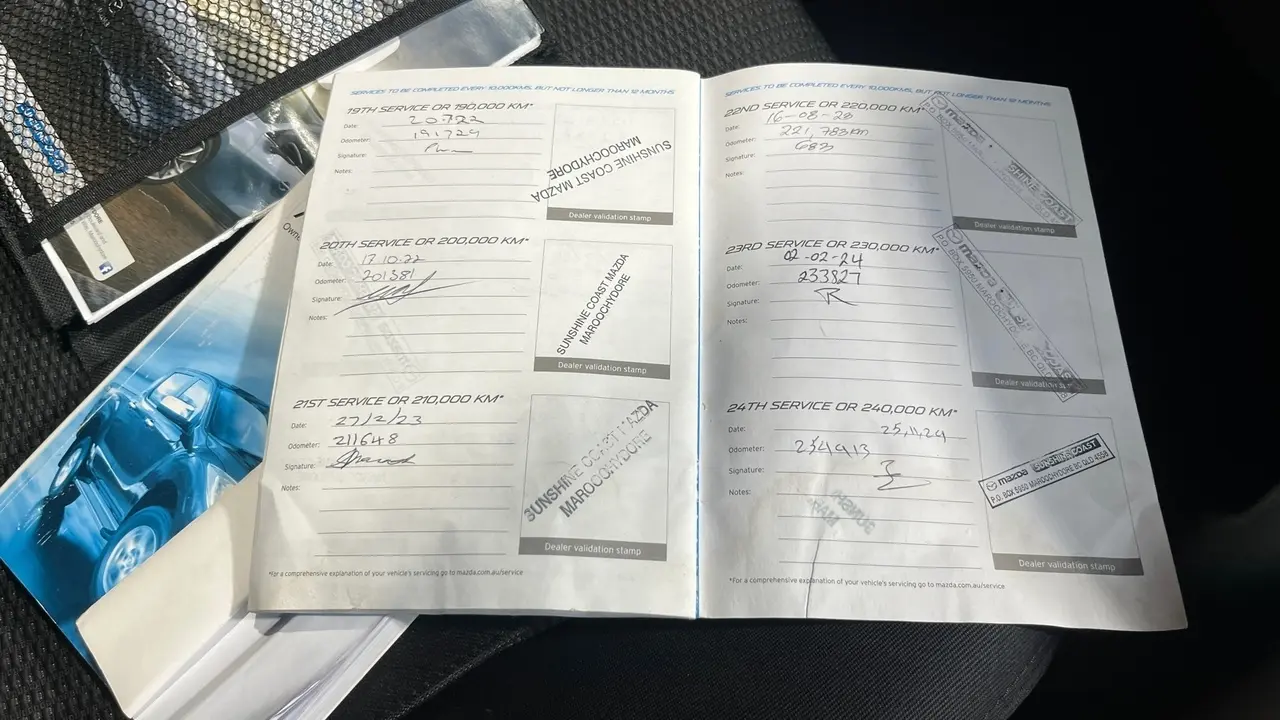 SERVICES TO BE COMPLETED EVERY 10,000KMS, BUT NOT LONGER THAN 12 MONTHS
19TH SERVICE OR 190,000 KM*
Date: 20722
Odometer: 191729
Signature:
Notes:
SUNSHINE COAST MAZDA
MAROOCHYDORE
Dealer validation stamp
20TH SERVICE OR 200,000 KM*
Date: 17.10.22
Odometer: 201381
Signature:
Notes:
SUNSHINE COAST MAZDA
MAROOCHYDORE
Dealer validation stamp
21ST SERVICE OR 210,000 KM*
Date: 27/2/23
Odometer: 211648
Signature:
Notes:
SUNSHINE COAST MAZDA
MAROOCHYDORE
Dealer validation stamp
*For a comprehensive explanation of your vehicle's servicing go to mazda.com.au/service
SERVICES TO BE COMPLETED EVERY 10,000KMS, BUT NOT LONGER THAN 12 MONTHS
22ND SERVICE OR 220,000 KM*
Date: 16-08-23
Odometer: 221,783km
Signature:
Notes:
mazda
P.O. BOX
COAST
Dealer validation stamp
23RD SERVICE OR 230,000 KM*
Date: 02-02-24
Odometer: 233827
Signature:
Notes:
mazda
P.O. BOX 5950 MAROOCHYD
Dealer validation stamp
24TH SERVICE OR 240,000 KM*
Date: 25,11,24
Odometer: 234913
Signature:
Notes:
mazda SUNSHINE COAST
P.O. BOX 5950 MAROOCHYDORE BC QLD 4558
Dealer validation stamp
*For a comprehensive explanation of your vehicle's servicing go to mazda.com.au/service